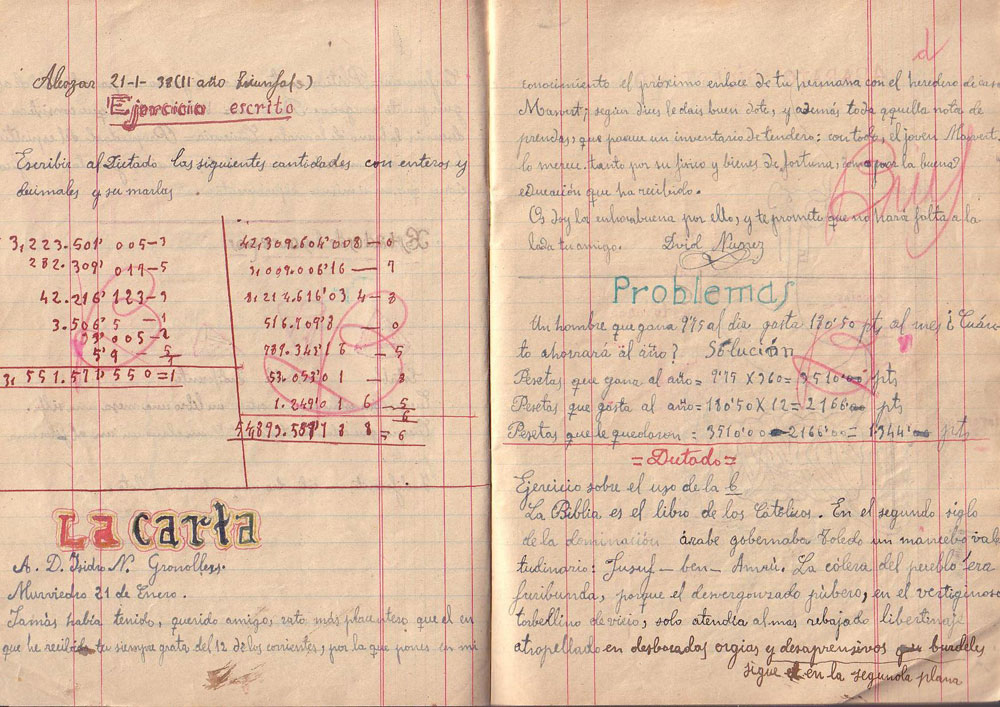 Alcozar 21-1-38 (II año Triunfal)
Ejercicio escrito
Escribir al Dictado las siguientes cantidades con enteros y
decimales y sumarlas
3,223.501' 005-3
282.309' 017-5
42.216' 123-9
3.506' 5 -1
39' 005-2
5'9 -5
3,551.571' 550=1
42,309.604'008-0
3,009.006'16-7
8,214.616'03 4-8
516.709'8 -0
789.345'16 -5
53.053'01 -3
1.249'01 6 -5
54893.587'7 8 8 = 6
La carta
A. D. Isidro N. Gronollers.
Murviedro 21 de Enero.
Jamás había tenido, querido amigo, rato más placentero que el en
que he recibido tu siempre grata del 12 de los corrientes, por la que pones en mi
conocimiento el próximo enlace de tu hermana con el heredero de casa
Manret; según dices, le dais buen dote, y además toda aquella nota de
prendas, que parece un inventario de tendero: con todo, el joven Manret
lo merece tanto por su juicio y bienes de fortuna, como por la buena
educación que ha recibido.
Os doy la enhorabuena por ello, y te prometo que no hará falta a la
boda tu amigo. Ivid Nuñez
Problemas
Un hombre que gana 9'75 al dia gasta 180'50 pts al mes ¿Cuán-
to ahorrará al año? Solución
Pesetas que gana al año = 9'75 X 360 = 3510'00 pts
Pesetas que gasta al año = 180'50 X 12 = 2166'00 pts
Pesetas que le quedaron = 3510'00 - 2166'00 = 1.344'00 pts
=Dictado=
Ejercicio sobre el uso de la b
La Biblia es el libro de los Católicos. En el segundo siglo
de la dominación árabe gobernaba Toledo un mancebo vale
tudinario: Jusuf-ben-Amrú. La cólera del pueblo era
furibunda, porque el desvergonzado púbero, en el vertiginoso
torbellino de vicio, solo atendía al mas rebajado libertinaje
atropellado en desbocadas orgias y desaprensivos burdeles
sigue en la segunda plana